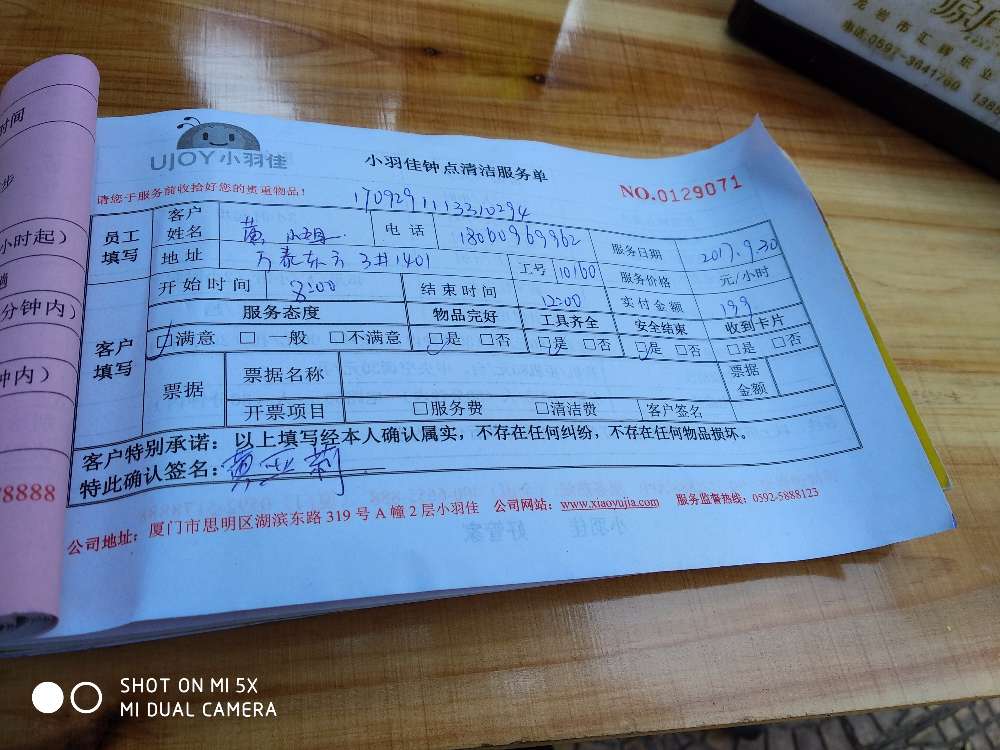 源
龙岩市汇祥纸业
电话:0597-3041760 1380
时间
步
小时起）
分钟内）
钟内）
8888
UJOY小羽佳
小羽佳钟点清洁服务单
请您于服务前收拾好您的贵重物品！
NO.0129071
1709291113310294
员工填写 客户姓名 黄小姐 电话 18060969962 服务日期 2017.9.30
地址 万泰东方3#1401 工号 10160 服务价格 元/小时
客户填写 开始时间 8:00 结束时间 12:00 实付金额 199
服务态度 物品完好 工具齐全 安全结束 收到卡片
□满意 □一般 □不满意 □是 □否 □是 □否 □是 □否 □是 □否
票据 票据名称 票据金额
开票项目 □服务费 □清洁费 客户签名
客户特别承诺：以上填写经本人确认属实，不存在任何纠纷，不存在任何物品损坏。
特此确认签名：黄亚莉
公司地址：厦门市思明区湖滨东路319号A幢2层小羽佳 公司网站：www.xiaoyujia.com 服务监督热线：0592-5888123
小羽佳 好管家
SHOT ON MI 5X
MI DUAL CAMERA